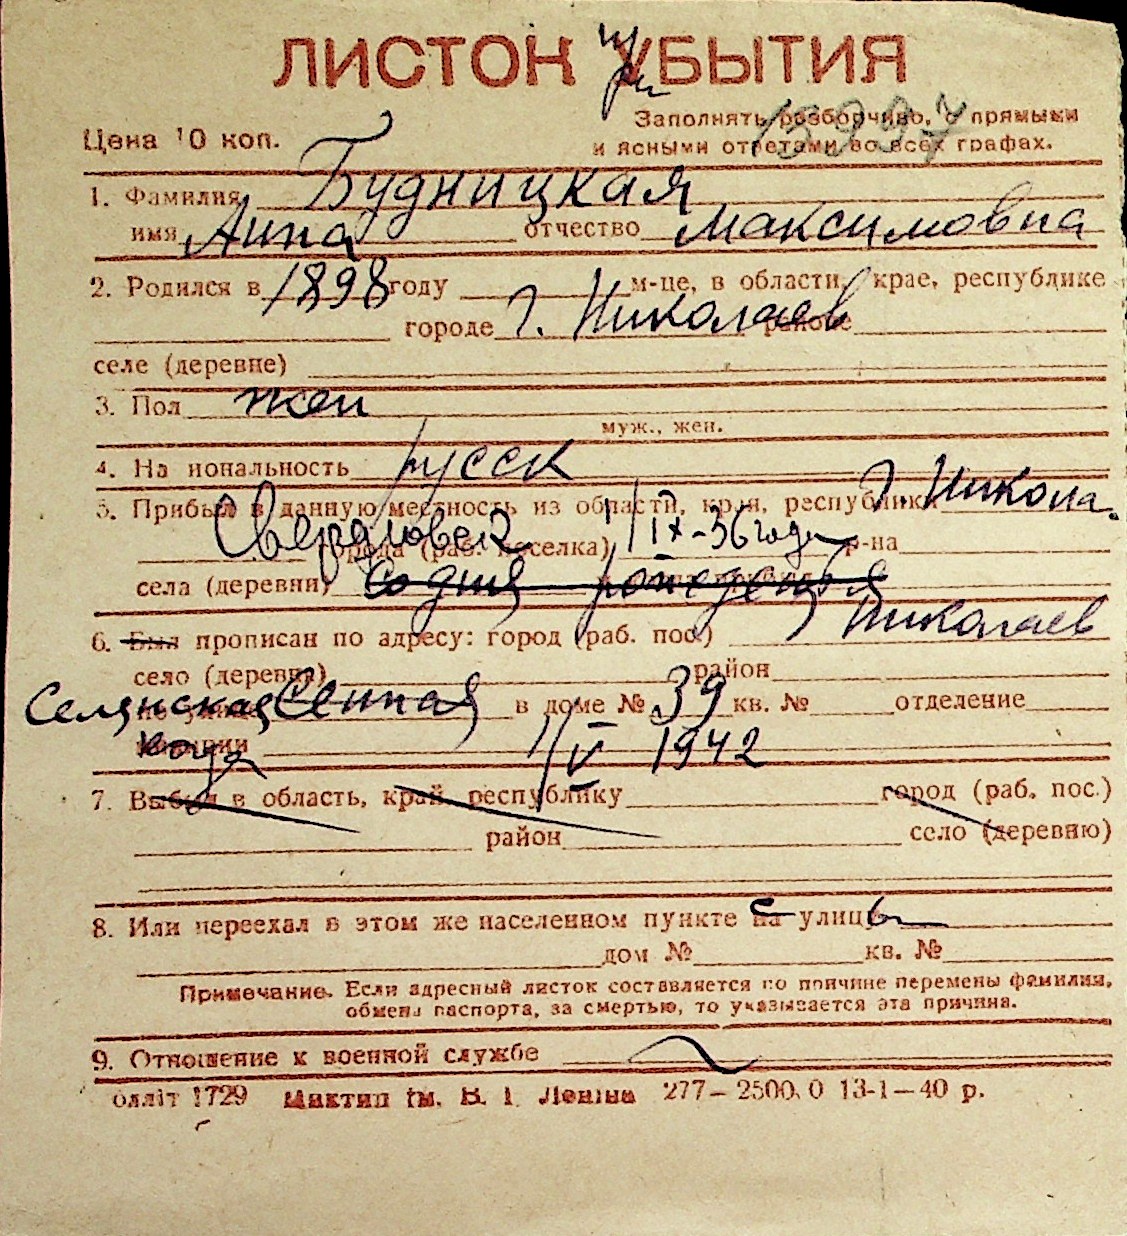 ЛИСТОК УБЫТИЯ
при
15997
Цена 10 коп.
Заполнять разборчиво, с прямыми
и ясными ответами во всех графах.
1. Фамилия Будницкая
имя Анна отчество Максимовна
2. Родился в 1898 году м-це, в области, крае, республике
городе г. Николаев районе
селе (деревне)
3. Пол жен
муж., жен.
4. На иональность русск
5. Прибыл в данную местность из области, края, республики г. Никола.
Свердловск города (раб. поселка) 1/IX-36 года р-на
села (деревни) со дня рождения
6. Был прописан по адресу: город (раб. пос.) Николаев
село (деревня) район
Селянская Сенная в доме № 39 кв. № отделение
когда 1/V 1942
7. Выбыл в область, край, республику город (раб. пос.)
район село (деревню)
8. Или переехал в этом же населенном пункте на с улицы
дом № кв. №
Примечание. Если адресный листок составляется по причине перемены фамилии,
обмена паспорта, за смертью, то указывается эта причина.
9. Отношение к военной службе
облліт 1729 Миктип ім. В. І. Леніна 277—2500.0 13-1—40 р.